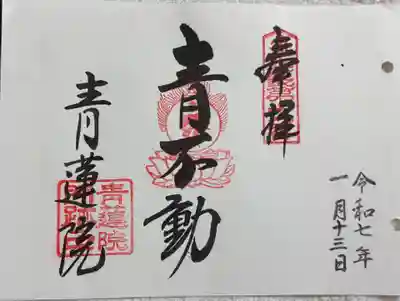 奉拝
令和七年
一月十三日
青不動
青蓮院
青蓮院
門跡